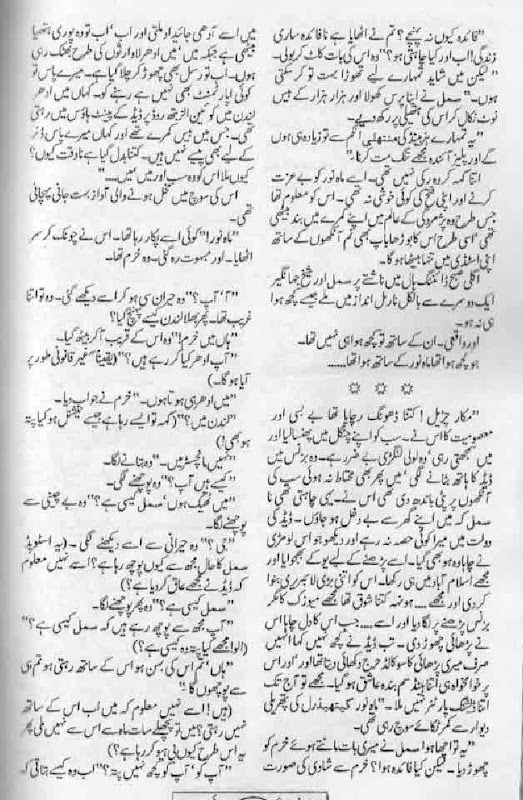 "فائدہ کیوں نہ پہنچے؟ تم نے اٹھایا ہے نا فائدہ ساری
زندگی! اب اور کیا چاہتی ہو؟" وہ اس کی بات کاٹ کر بولی۔
"لیکن میں شاید تمہارے لیے تھوڑا بہت تو کر سکتی
ہوں۔" سمل نے اپنا پرس کھولا اور ہزار ہزار کے بیس
نوٹ نکال کر اس کی ہتھیلی پر رکھ دیے۔
"یہ تمہارے ہزبینڈ کی منتھلی انکم سے تو زیادہ ہی ہوں
گے اور پلیز آئندہ مجھے تنگ مت کرنا۔"
اتنا کہہ کر وہ رکی نہیں تھی۔ اسے ماہ نور کو بے عزت
کرنے اور اپنی فتح کی کوئی خوشی نہ تھی۔ اس کو معلوم تھا
جس طرح وہ پژمردگی کے عالم میں اپنے کمرے میں بند بیٹھی
تھی، اسی طرح اس کا بوڑھا باپ بھی نم آنکھوں کے ساتھ
اپنی اسٹڈی میں تنہا بیٹھا ہو گا۔
اگلی صبح ڈائننگ ہال میں ناشتے پر سمل اور شیخ جہانگیر
ایک دوسرے سے بالکل نارمل انداز میں ملے جیسے کچھ ہوا
ہی نہ ہو۔
اور واقعی۔ ان کے ساتھ تو کچھ ہوا ہی نہیں تھا۔
جو کچھ ہوا تھا ماہ نور کے ساتھ ہوا تھا......
* * *
"مکار چڑیل! کتنا ڈھونگ رچایا تھا بے بسی اور
معصومیت کا اس نے۔ سب کو اپنے چنگل میں پھنسا لیا اور
میں سمجھتی رہی، وہ لولی لنگڑی بے ضرر ہے۔ وہ بزنس میں
ڈیڈ کا ہاتھ بٹانے لگی، میں پھر بھی محتاط نہ ہوئی سب کی
آنکھوں پر پٹی باندھ دی تھی اس نے۔ یہی چاہتی تھی نا
سمل کہ میں اپنے گھر سے بے دخل ہو جاؤں۔ ڈیڈ کی
دولت میں میرا کوئی حصہ نہ رہے اور دیکھو جو اس لومڑی
نے چاہا وہ ہو بھی گیا۔ اسے پڑھنے کے لیے یو کے بھجوایا اور
مجھے اسلام آباد میں ہی رکھا۔ اس کو اتنی بڑی لائبریری بنوا
کر دی اور مجھے.... ہونہہ کتنا شوق تھا مجھے میوزک کا مگر
بزنس پڑھنے پر لگا دیا اور اسے.... جب اس کا دل چاہا اس
نے پڑھائی چھوڑ دی۔ تب ڈیڈ نے کچھ نہیں کہا! انہیں
صرف میری پڑھائی کا سو کالڈ خرچ دکھائی دیتا تھا اور اس
پر خوامخواہ ہی اتنا ہینڈسم بندہ عاشق ہو گیا۔ مجھے تو آج تک
اتنا ڈیشنگ پارٹنر نہیں ملا۔" ماہ نور کیتھیڈرل کی پتھریلی
دیوار سے کمر ٹکائے سوچ رہی تھی۔
"یہ تو اچھا ہوا سمل نے میری بات مانتے ہوئے خرم کو
چھوڑ دیا۔ لیکن کیا فائدہ ہوا؟ خرم سے شادی کی صورت
میں اسے آدھی جائیداد ملتی اور اب، اب تو وہ پوری ہتھیا
بیٹھی ہے جبکہ میں، میں ادھر لاوارثوں کی طرح بھٹک رہی
ہوں۔ اب تو رسل بھی چھوڑ کر چلا گیا ہے۔ میرے پاس تو
کوئی اپارٹمنٹ بھی نہیں ہے رہنے کو۔ کہاں میں ادھر
لندن میں کوئین الزبتھ روڈ پر ڈیڈ کے پینٹ ہاؤس میں رہتی
تھی۔ جس میں بیس کمرے تھے اور کہاں میرے پاس ڈنر
کے لیے بھی پیسے نہیں ہیں۔ کتنا بدل گیا ہے نا وقت کیوں؟
کیوں ملا اس کو وہ سب اور میں، میں....."
اس کی سوچ میں مخل ہونے والی آواز بہت جانی پہچانی
تھی۔
"ماہ نور!" کوئی اسے پکار رہا تھا۔ اس نے چونک کر سر
اٹھایا۔ اور مبہوت رہ گئی۔ وہ خرم تھا۔
"آ۔ آپ؟" وہ حیران سی ہو کر اسے دیکھے گئی۔ وہ تو اتنا
غریب تھا۔ پھر بھلا لندن کیسے پہنچ گیا؟
"ہاں میں خرم!" وہ اس کے پاس آ کر بیٹھ گیا۔
"آپ ادھر کیا کر رہے ہیں؟" (یقیناً غیر قانونی طور پر
آیا ہو گا۔)
"میں ادھر ہی ہوتا ہوں۔" خرم نے جواب دیا۔
"لندن میں؟" (کہہ تو ایسے رہا ہے جیسے نیشنل ہو کیا پتہ
ہو بھی!)
"نہیں مانچسٹر میں۔" وہ بتانے لگا۔
"کیسے ہیں آپ؟" وہ پوچھنے لگی۔
"میں ٹھیک ہوں، سمل کیسی ہے؟" وہ بے چینی سے
پوچھنے لگا۔
"جی؟" وہ حیرانی سے اسے دیکھنے لگی۔ (یہ اسٹوپڈ
سمل کا حال مجھ سے کیوں پوچھ رہا ہے؟ اسے نہیں معلوم
کہ ڈیڈ نے مجھے عاق کر دیا ہے؟)
"سمل کیسی ہے؟" وہ پھر پوچھنے لگا۔
"آپ مجھ سے پوچھ رہے ہیں کہ سمل کیسی ہے؟"
(الو! مجھے کیا پتہ وہ کیسی ہے؟)
"ہاں، تم اس کی بہن ہو اس کے ساتھ رہتی ہو تم ہی
سے پوچھوں گا۔"
(ہیں! اسے نہیں معلوم کہ میں اب اس کے ساتھ
نہیں رہتی؟ میں تو پچھلے سات ماہ سے اس سے نہیں ملی پھر
یہ اس طرح کیوں بی ہیو کر رہا ہے؟)
"آپ کو، آپ کو کچھ نہیں پتہ؟" اب وہ کیسے بتاتی کہ